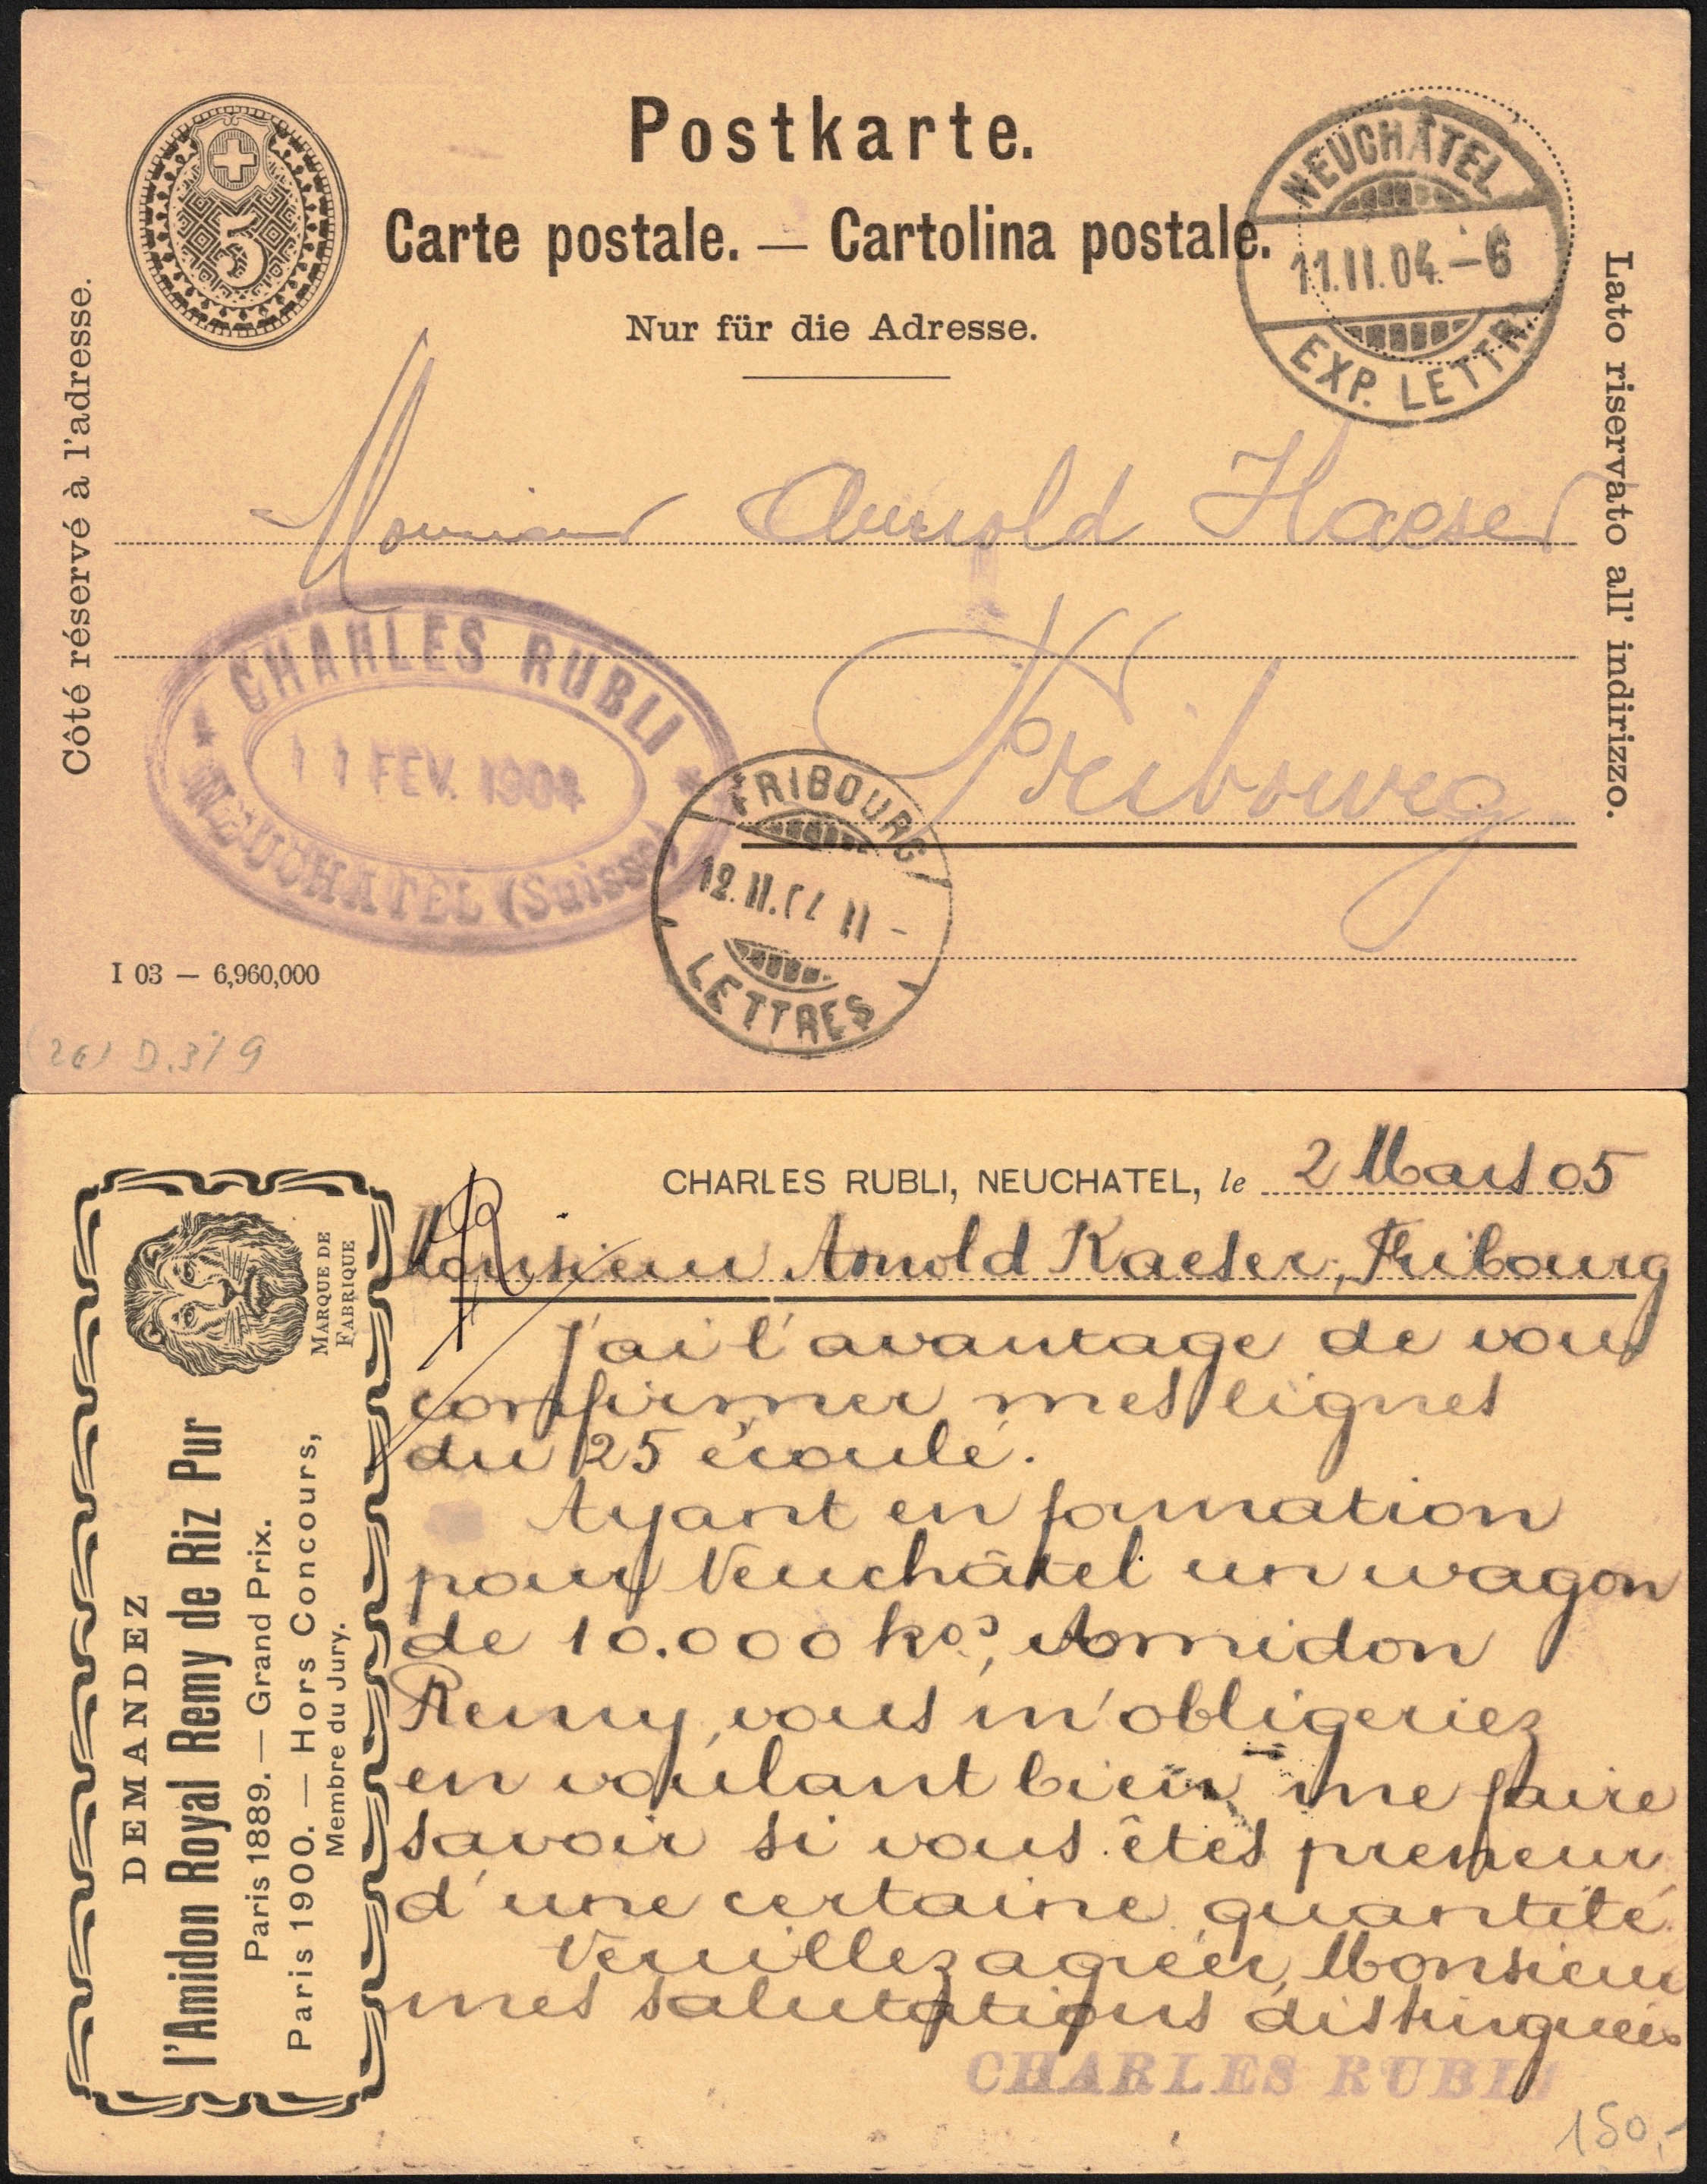 5
Postkarte.
Carte postale. — Cartolina postale.
Nur für die Adresse.
Côté réservé à l'adresse.
Lato riservato all' indirizzo.
NEUCHÂTEL
11.II.04.–6
EXP. LETTR.
Monsieur Arnold Kaeser
Fribourg
CHARLES RUBLI
11 FEV. 1904
NEUCHATEL (Suisse)
FRIBOURG
12.II.04 11 –
LETTRES
I 03 — 6,960,000
CHARLES RUBLI, NEUCHATEL, le 2 Mars 05
Monsieur Arnold Kaeser, Fribourg
J'ai l'avantage de vous
confirmer mes lignes
du 25 écoulé.
Ayant en formation
pour Neuchâtel un wagon
de 10.000 kos, Amidon
Remy, vous m'obligeriez
en voulant bien me faire
savoir si vous êtes preneur
d'une certaine quantité.
Veuillez agréer, Monsieur
mes salutations distinguées
CHARLES RUBLI
150,-
MARQUE DE
FABRIQUE
DEMANDEZ
l'Amidon Royal Remy de Riz Pur
Paris 1889. — Grand Prix.
Paris 1900. — Hors Concours,
Membre du Jury.